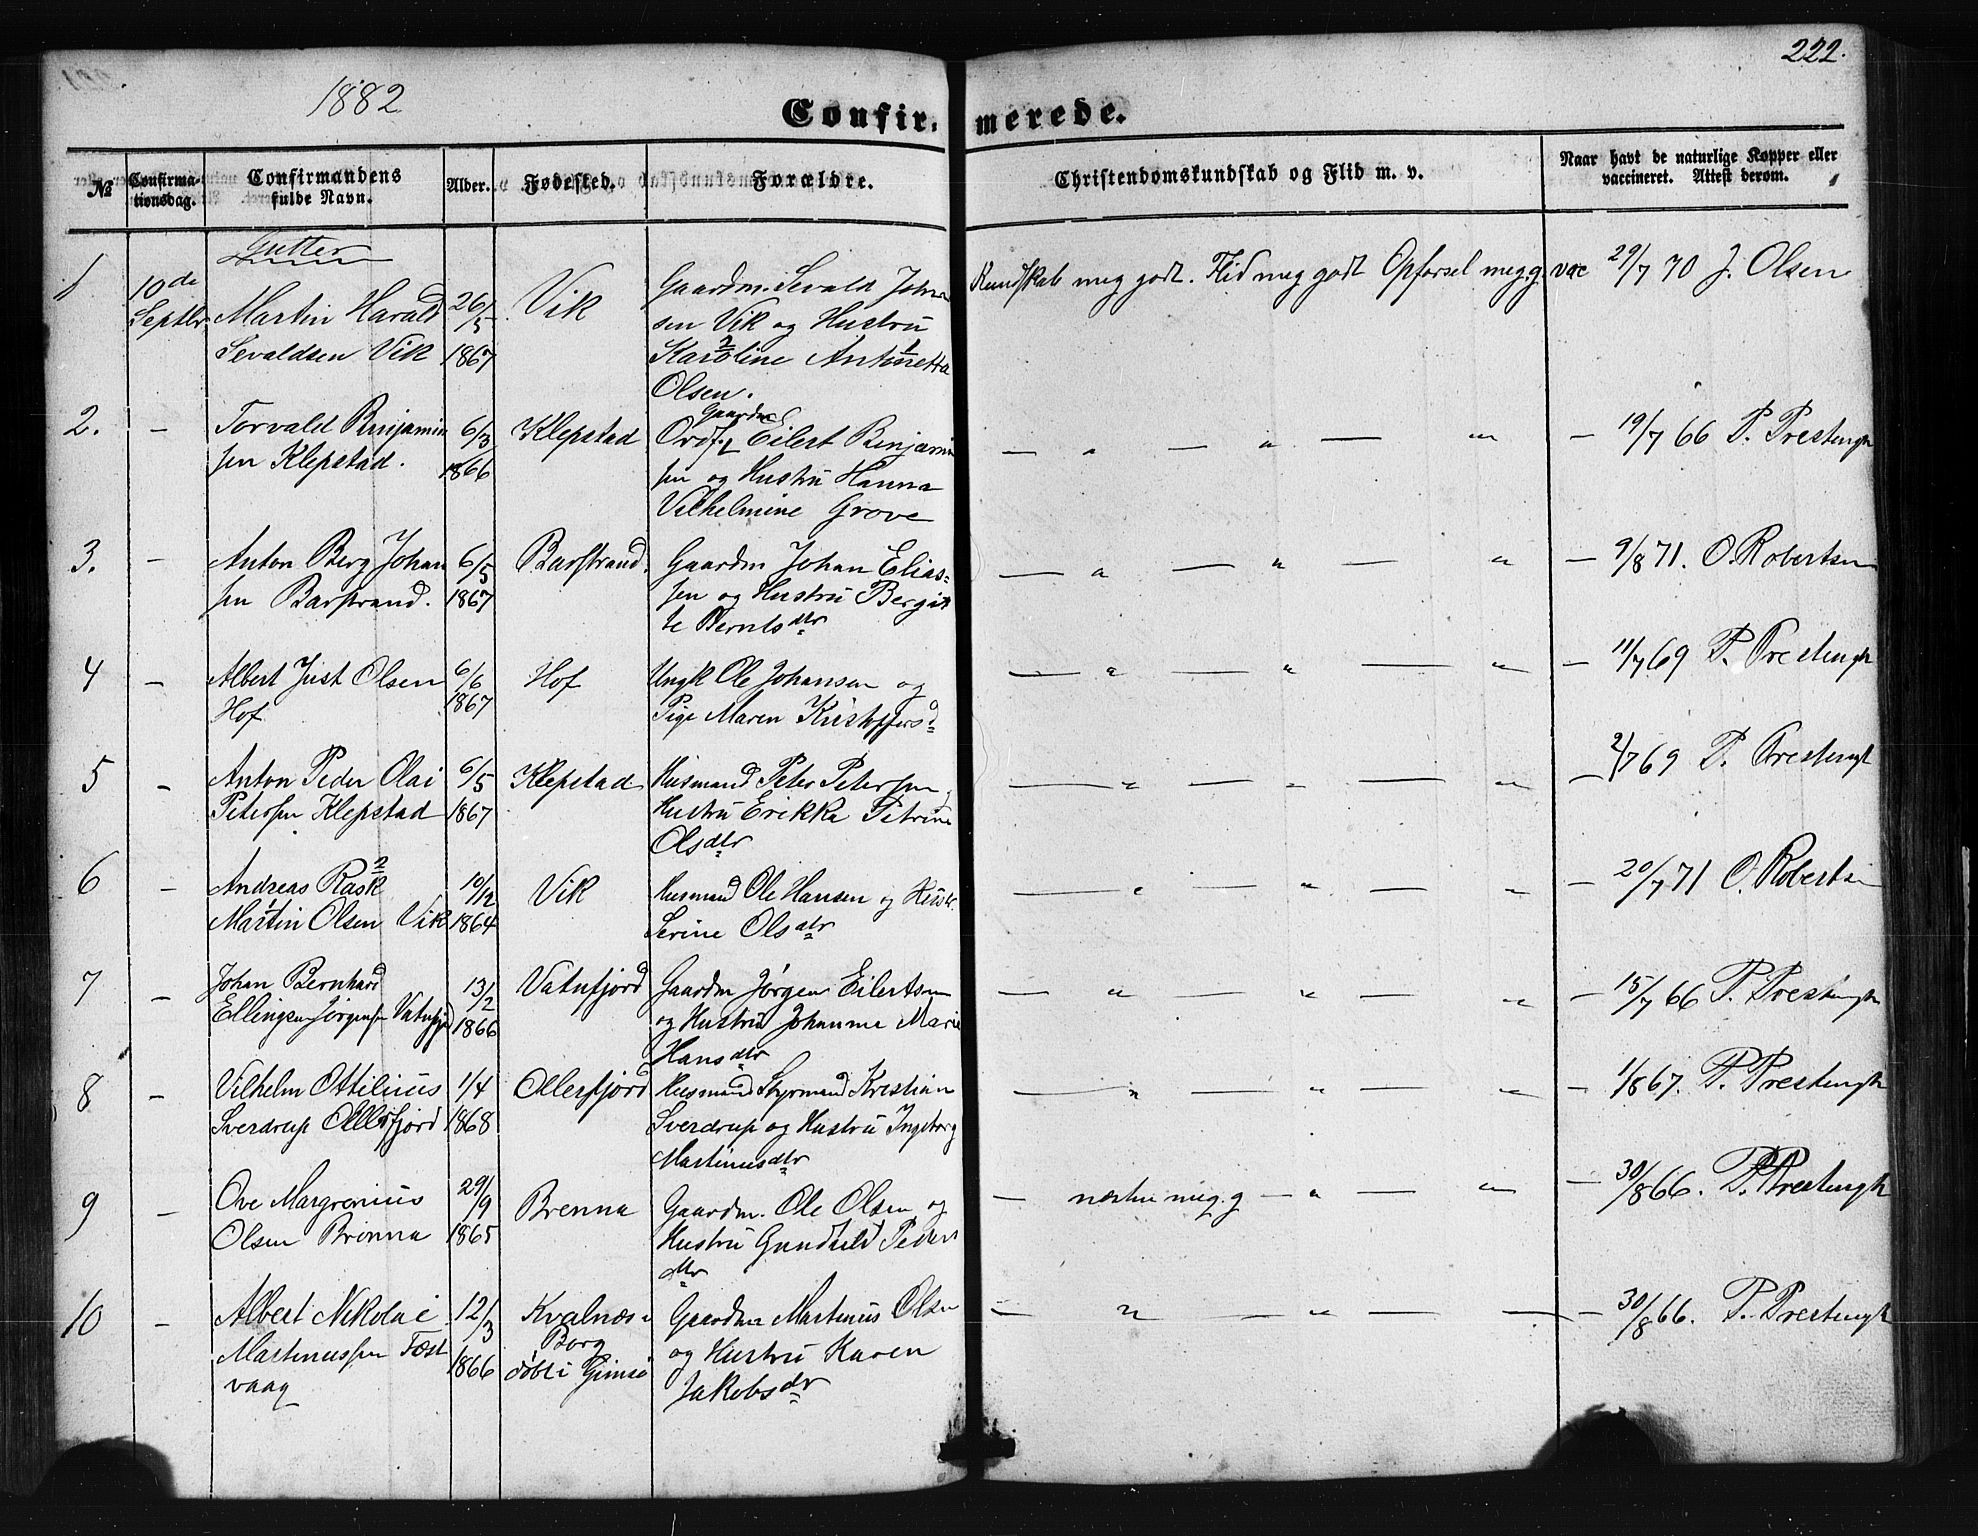 222.
1882
Confirmerede.
№ Confirmationsdag. Confirmandens fulde Navn. Alder. Fødested. Forældre. Christendomskundskab og Flid m. v. Naar havt de naturlige Kopper eller vaccineret. Attest derom.
Gutter
1 10de Septbr Martin Harald 26/5 Vik Gaardm. Sevald Johan Kundskab meg godt. Flid meg godt Opførsel meg. g. vac 29/7 70 J. Olsen
Sevaldsen Vik 1867 sen Vik og Hustru
Karoline 2 Antonetta 1
Olsen.
2. — Torvald Benjamin 6/3 Klepstad Gaardm Ordf. Eilert Benjamin — " — " — " — 19/7 66 P. Prestength
sen Klepstad. 1866 sen og Hustru Hanna
Vilhelmine Grove
3. — Anton Berg Johan 6/5 Barstrand. Gaardm Johan Elias= — " — " — " — 9/8 71. O. Robertsen
sen Barstrand. 1867 sen og Hustru Bergit
te Berntsdtr
4 — Albert Just Olsen 6/6 Hof Ungk Ole Johansen og — " — " — " — 11/7 69 P. Prestength
Hof. 1867 Pige Maren Kristoffersd
5 — Anton Peder Olai 6/5 Klepstad Husmand Peter Petersen — " — " — " — 2/7 69 P. Prestength
Petersen Klepstad 1867 Hustru Erikka Petrine
Olsdtr
6 — Andreas Rask 2 10/12 Vik Husmand Ole Hansen og Hustr. — " — " — " — 20/7 71 O. Robertsen
Martin 1 Olsen Vik 1864 Serine Olsdtr
7 — Johan Bernhard 13/2 Vatnfjord Gaardm Jørgen Eilertsen — " — " — " — 15/7 66 P. Prestength
Ellingsen Jørgensen Vatnfjord 1866 og Hustru Johanna Marie
Hansdtr
8 — Vilhelm Ottilius 1/4 Ollersfjord Husmand Styrmand Kristian — " — " — " — 1/8 67. P. Prestength
Sverdrup Ollersfjord 1868 Sverdrup og Hustru Ingeborg
Martinusdtr
9 — Ove Margrenius 29/9 Brenna Gaardm. Ole Olsen og — næsten meg. g — " — " — 30/8 66. P. Prestength
Olsen Brenna 1865 Hustru Gundhild Peders
dtr
10 — Albert Nikolai 12/3 Kvalnæs i Gaardm Martinus Olsen — " — " — — 30/8 66. P. Prestength
Martinussen Fæst 1866 Borg og Hustru Karen
vaag døbt i Gimsø Jakobsdtr